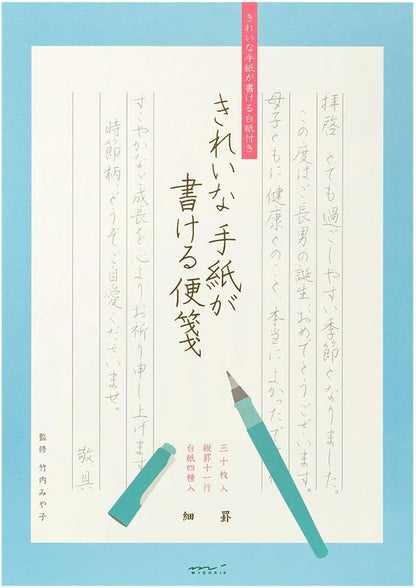 きれいな手紙が書ける台紙付き
拝啓 とても過ごしやすい季節となりました。
この度はご長男の誕生、おめでとうございます。
母子ともに健康とのこと、本当によかったで
きれいな手紙が
書ける便箋
すこやかなご成長を心よりお祈り申し上げます
時節柄、どうぞご自愛くださいませ。
敬具
三十枚入
縦罫十一行
台紙四種入
細罫
監修 竹内みや子
MIDORI